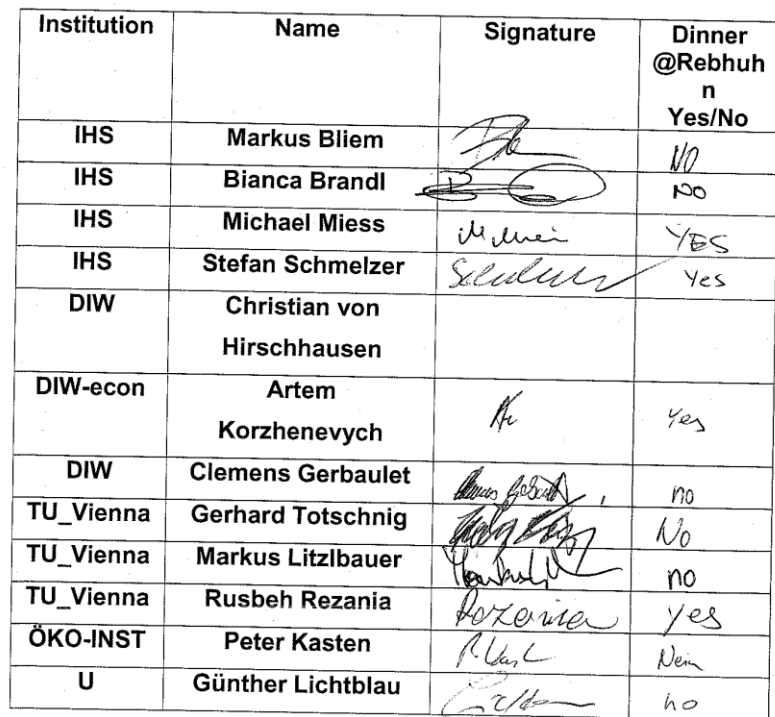 Institution Name Signature Dinner
@Rebhuh
n
Yes/No
IHS Markus Bliem NO
IHS Bianca Brandl NO
IHS Michael Miess YES
IHS Stefan Schmelzer Yes
DIW Christian von
Hirschhausen
DIW-econ Artem
Korzhenevych Yes
DIW Clemens Gerbaulet no
TU_Vienna Gerhard Totschnig No
TU_Vienna Markus Litzlbauer no
TU_Vienna Rusbeh Rezania Rezania yes
ÖKO-INST Peter Kasten Nein
U Günther Lichtblau no